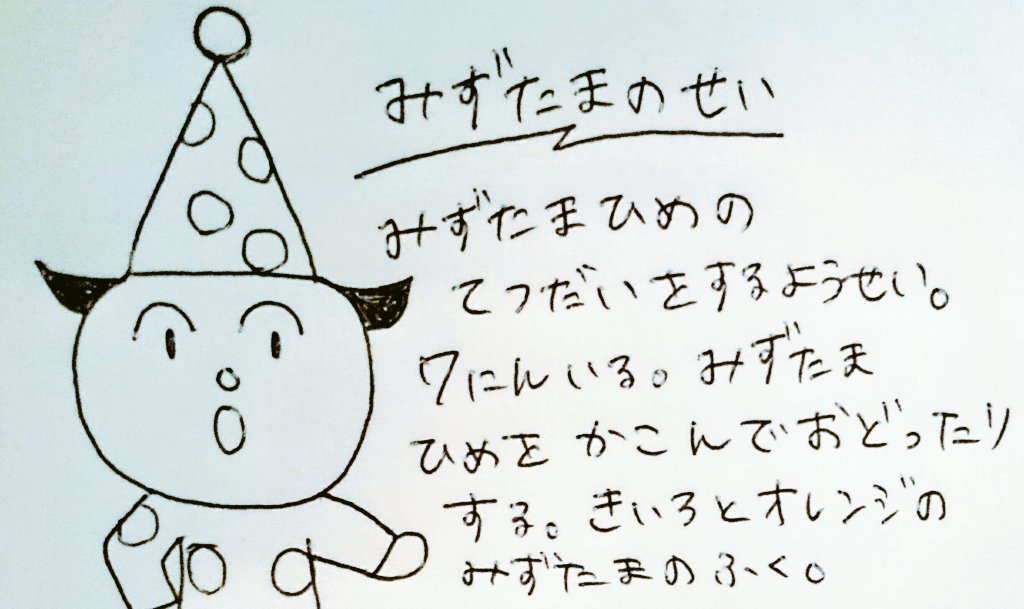 みずたまのせい
みずたまひめの
てつだいをするようせい。
7にんいる。みずたま
ひめを かこんでおどったり
する。きいろとオレンジの
みずたまのふく。